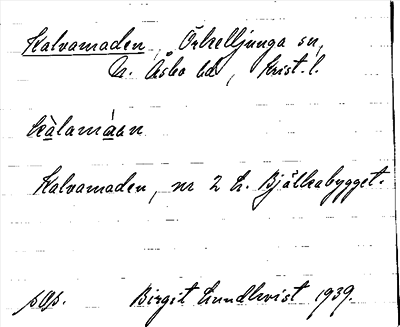 Kalvamaden, Örkelljunga sn,
N. Åsbo hd, Krist. l.
kàlamáan
Kalvamaden, nr 2 L. Bjälkabygget.
pop. Birgit Lundkvist 1939.